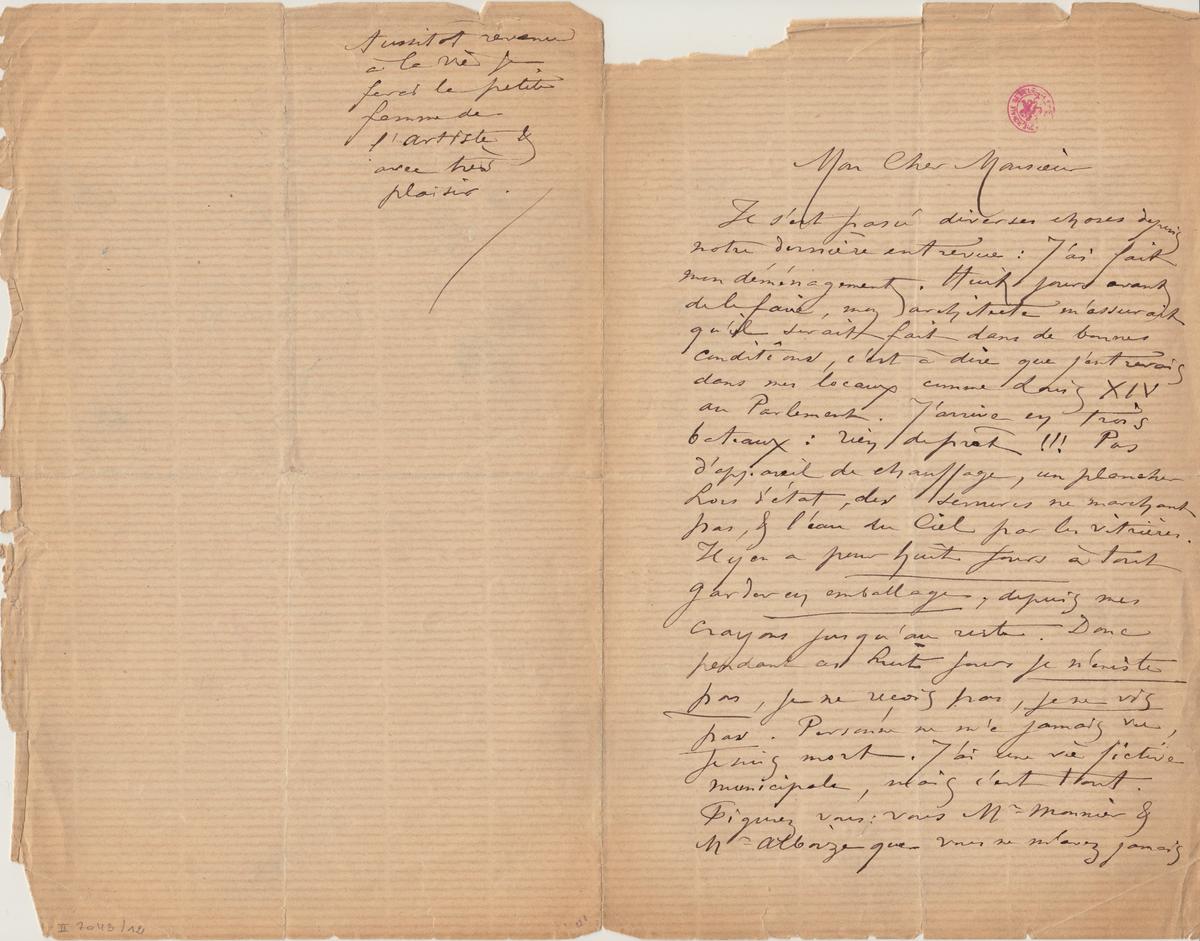 Aussitot revenu
à la vie je
ferai la petite
femme de
l'artiste &
avec très
plaisir.
Mon Cher Monsieur
Il s'est passé diverses choses depuis
notre dernière entrevue : J'ai fait
mon déménagement. Huit jours avant
de le faire, mon architecte m'assurait
qu'il serait fait dans de bonnes
conditions, c'est à dire que j'entrerais
dans mes locaux comme Louis XIV
au Parlement. J'arrive en trois
bateaux : rien de prêt !!! Pas
d'appareil de chauffage, un plancher
hors d'état, des serrures ne marchant
pas, & l'eau du Ciel par les vitrières.
Il y en a pour huit jours à tout
garder en emballage, depuis mes
crayons jusqu'au reste. Donc
pendant ces huit jours je n'existe
pas, je ne reçois pas, je ne vis
pas. Personne ne m'a jamais vu,
je suis mort. J'ai une vie fictive
municipale, mais c'est tout.
Figurez vous: vous Mr Monnier &
Mr Alboize que vous ne m'avez jamais
II 7043/12